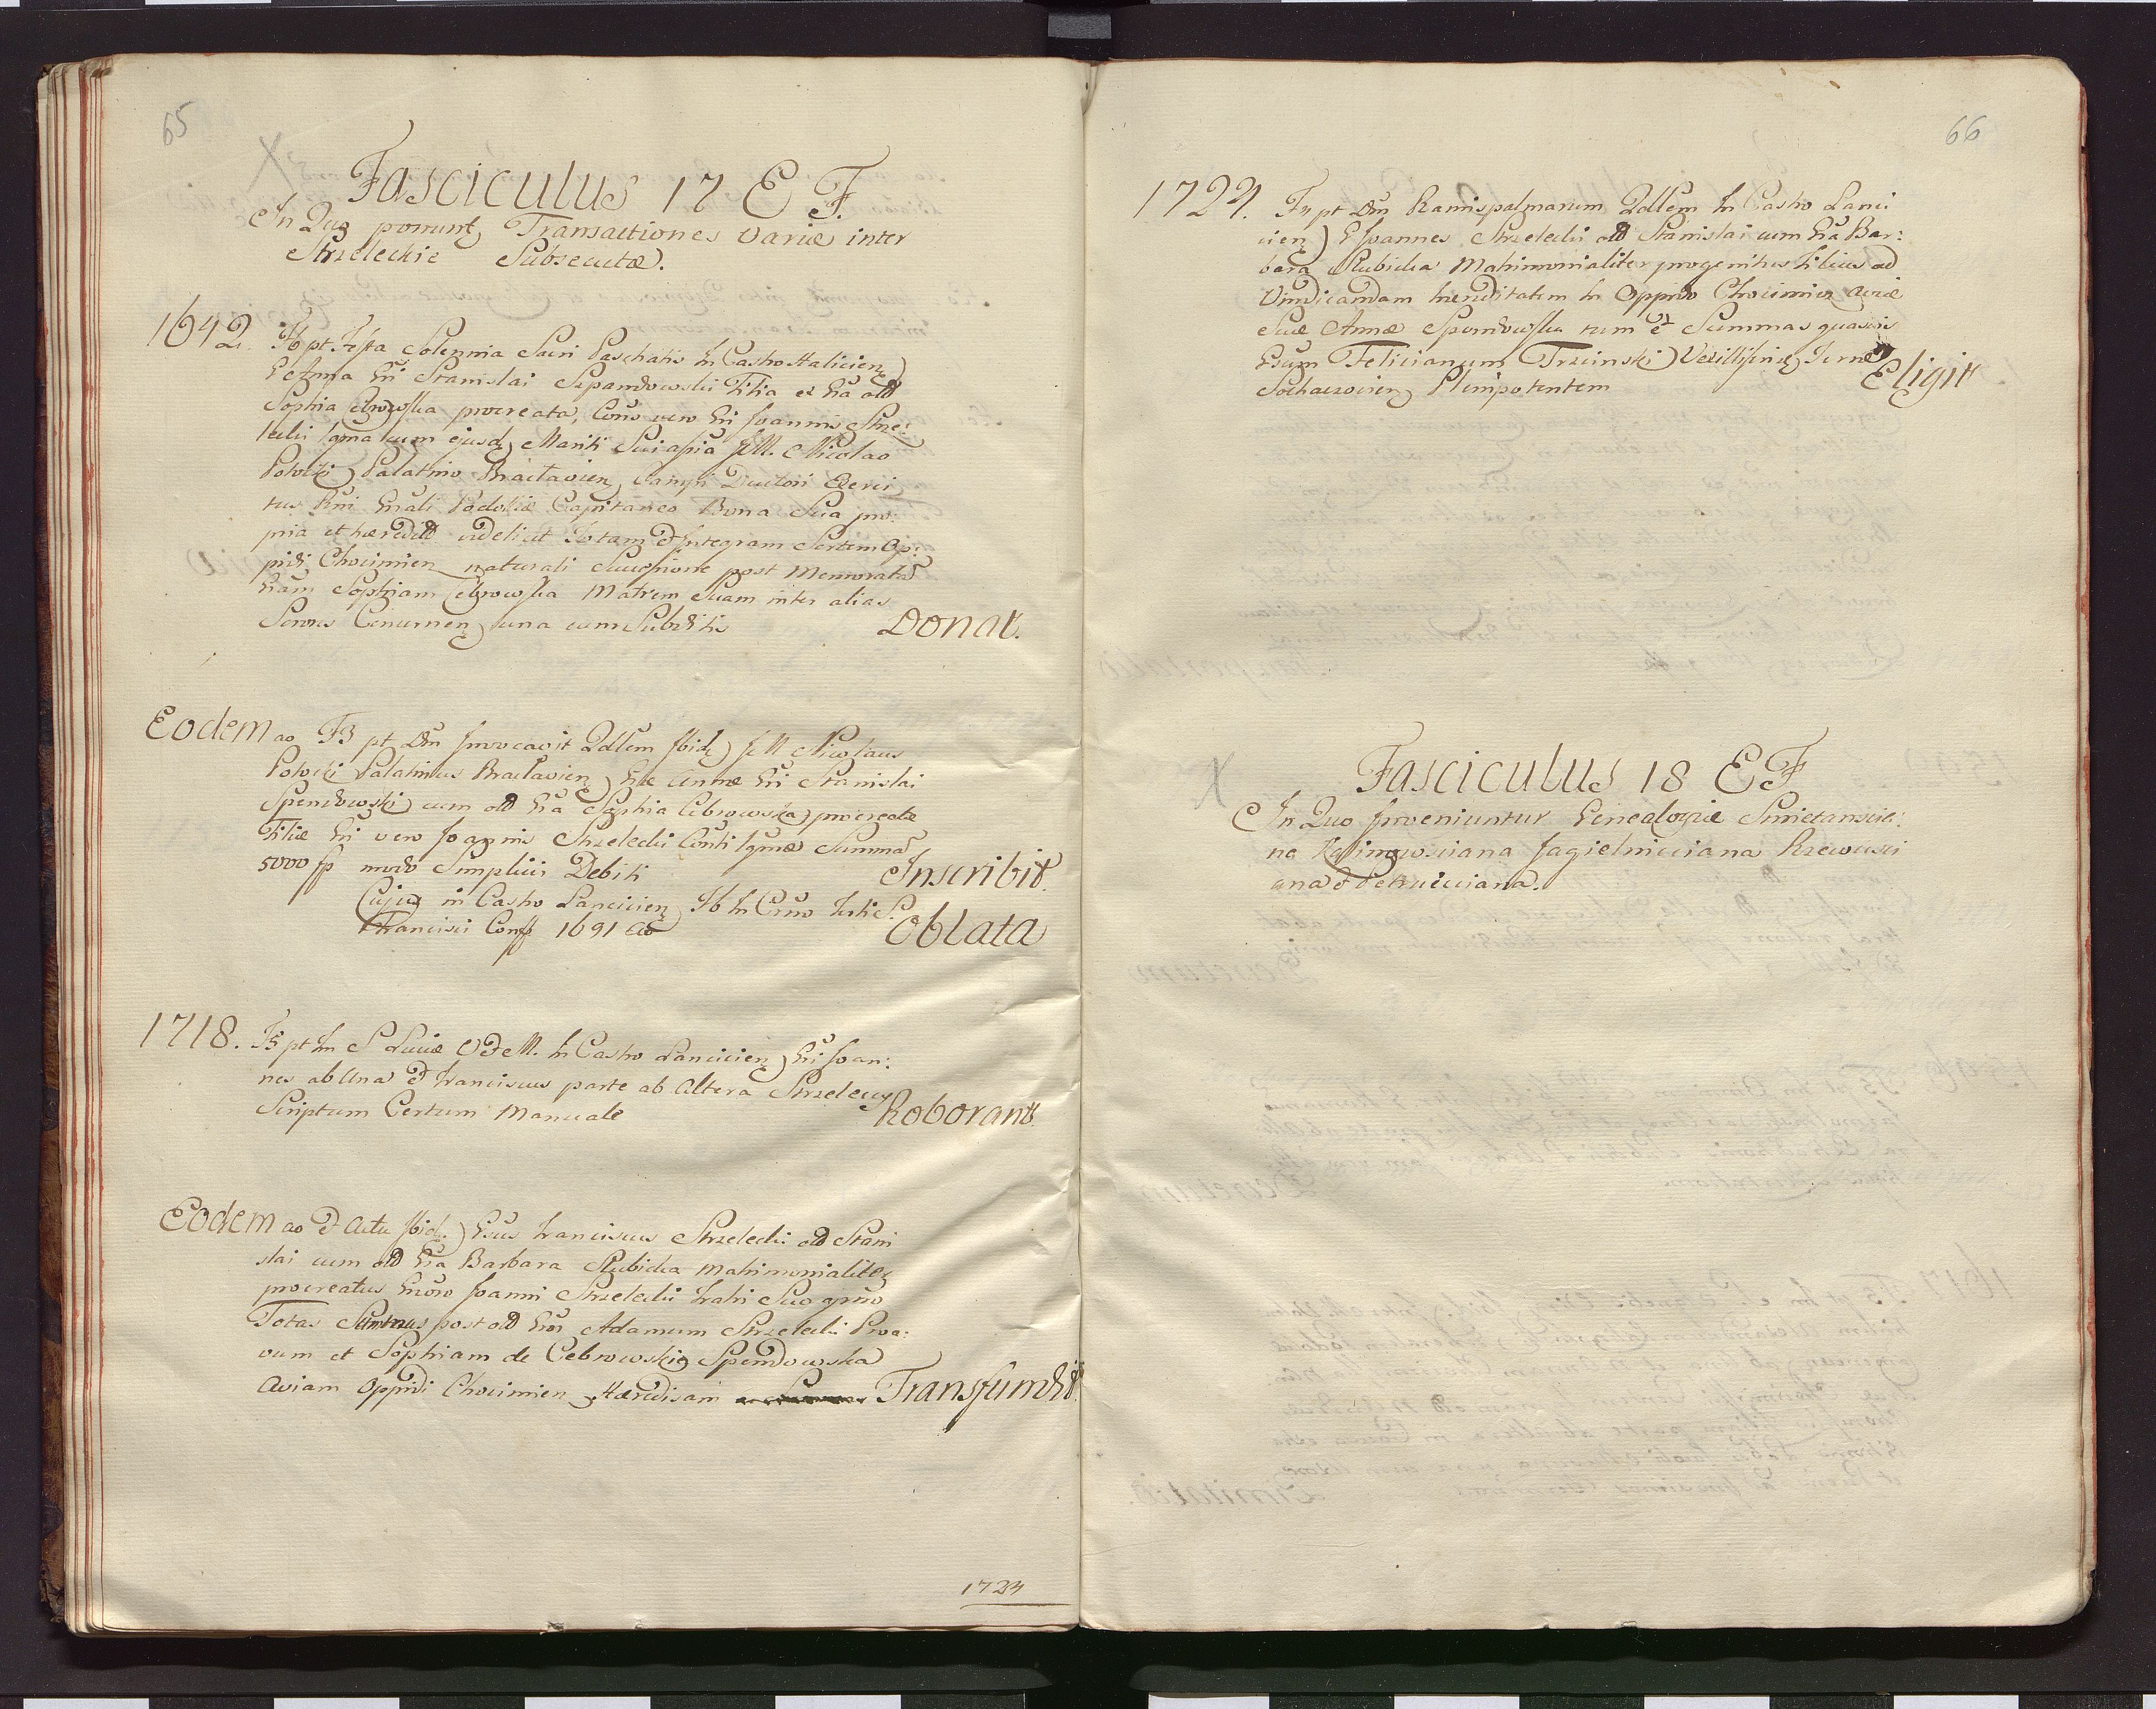 65
Fasciculus 17 E F.
In Quo ponunt Transactiones Variæ inter
Strzeleckie Subsecutæ.
1642. F6 pt. Festa Solennia Sacri Paschatis In Castro Haliciens
G Anna Gri Stanislai Spendowski Filia ex Gra olb
Sophia Cebrowska procreata, Cons vero Gri Joannis Strze:
lecki lgma cum ejusd Mariti Sui apia Nicolao
Potocki Palatino Braclavien, Campi Ductori Exerci
tus Rni Gnali Podoliæ Capitaneo Bona Sua pro:
pria et hæredit videlicet Totam et Integram Sortem Op:
pidi Chocimien naturali Successione post Memorata
Gram Sophiam Cebrowska Matrem Suam inter alias
Sorores una cum Subditis Donat.
Eodem ao F3 pt Dm Invocavit Qdlem Ibid Nicolaus
Potocki Palatinus Braclavien Græ Annæ Gri Stanislai
Spendowski cum olb Gra Sophia Cebrowska procreatæ
Filiæ Gri vero Joannis Strzelecki Conti lgmæ Summa
5000 fp modo Simplicis Debiti Inscribit.
Cujus in Castro Lancicien F6 In Crno Festi S.
Francisci Conff 1691 ao Oblata
1718. F5 pt Im S Luciæ V et M. In Castro Lancicien Gri Joan:
nes ab Una et Franciscus parte ab Altera Strzeleccy
Scriptum Certum Manuale Roborant.
Eodem ao et Actu Ibid. Gsus Franciscus Strzelecki olb Stani
slai cum olb Gra Barbara Rubicka Matrimonialiter
procreatus Groso Joanni Strzelecki Fratri Suo grno
Totas Summas post olb Gros Adamum Strzelecki Proa:
vum et Sophiam de Cebrowskie Spendowska
Aviam Oppidi Chocimien Hæredisam Transfundit.
1724
66
1724. F4 pt Dm Ramispalmarum Qdlem In Castro Lanci
cien G Joannes Strzelecki olb Stanislai cum Gra Bar:
bara Rubicka Matrimonialiter progenitus Filius ad
Vindicandam hæreditatem In Oppido Chocimien aviæ
Suæ Annæ Spendowska tum et Summas quasvis
Gsum Felicianum Trzcinski Vexilliferum Terræ
Sochaczovien Plenipotentem Eligit
Fasciculus 18 EF
In Quo Inveniuntur Genealogiæ Smietanscia:
na Jagielnicciana Rzewusci
ana et Petrucciana.